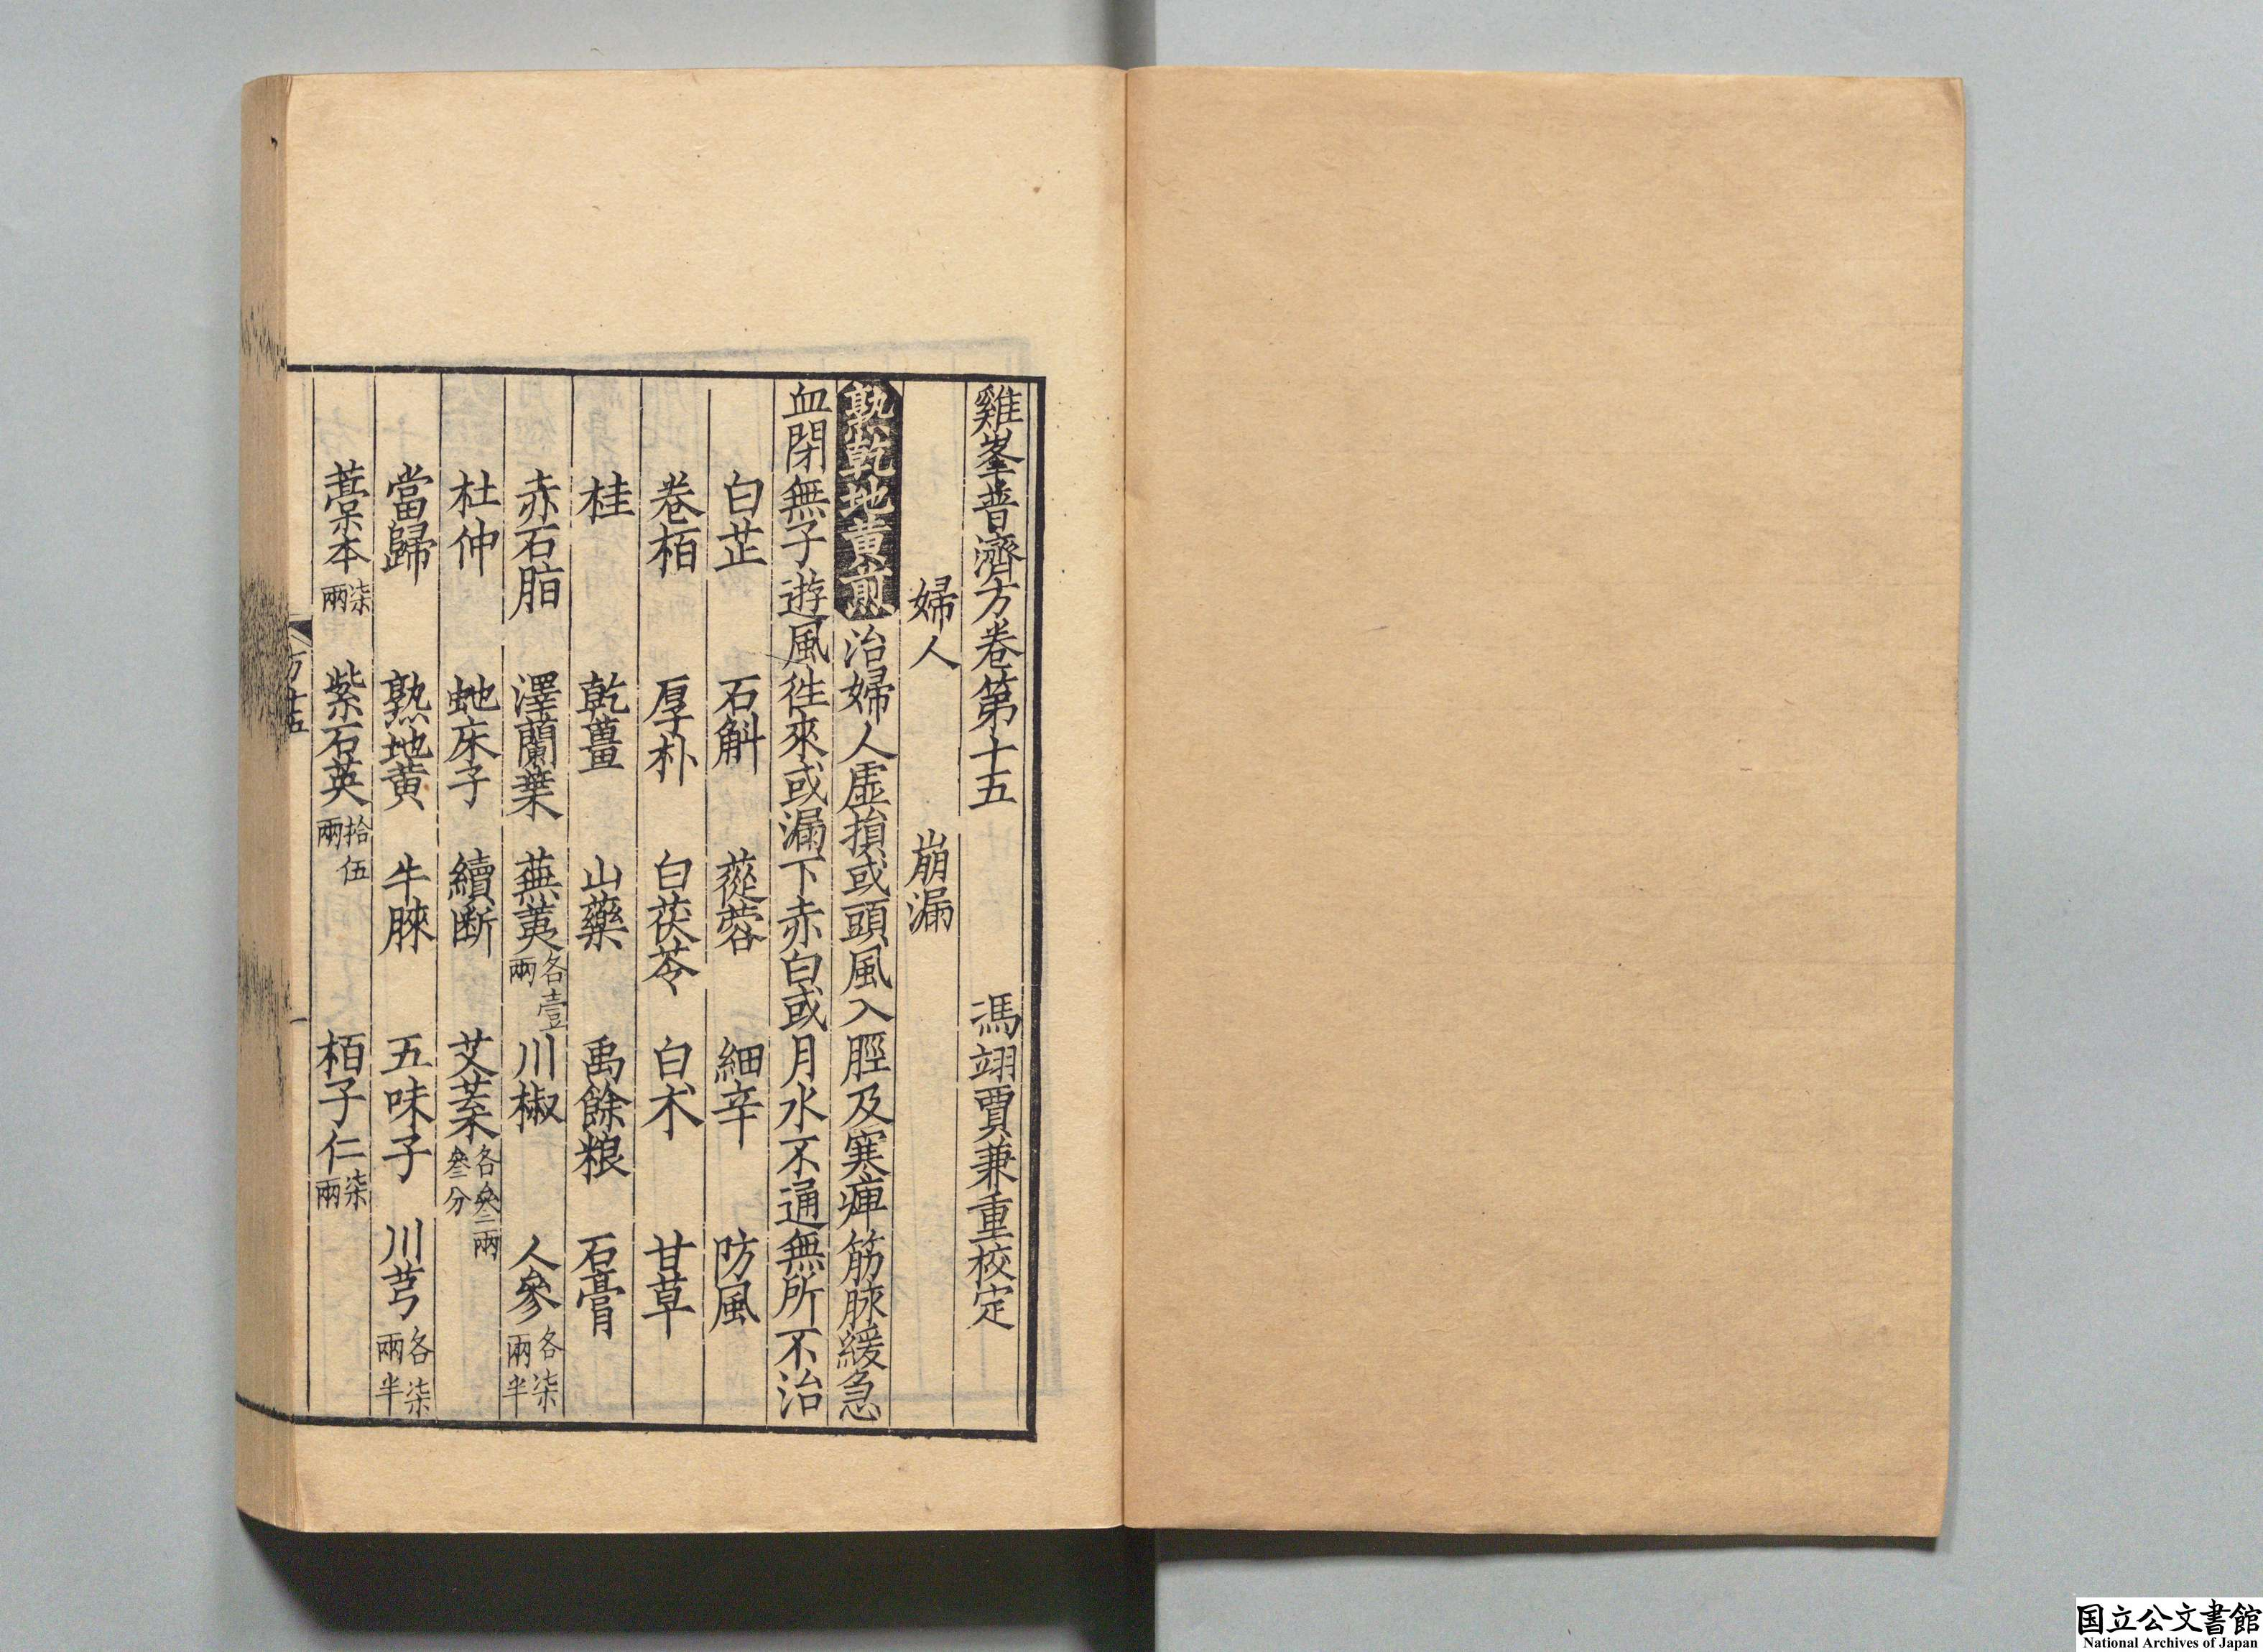 雞峯普濟方卷第十五　馮翊賈兼重校定
婦人　崩漏
熟乾地黄煎　治婦人虛損或頭風入脛及寒痺筋脉緩急
血閉無子遊風徃來或漏下赤白或月水不通無所不治
白芷　石斛　蓯蓉　細辛　防風
卷栢　厚朴　白茯苓　白术　甘草
桂　乾薑　山藥　禹餘粮　石膏
赤石脂　澤蘭葉　蕪荑各壹兩　川椒　人參各柒兩半
杜仲　虵床子　續断　艾葉各叁兩叁分
當歸　熟地黄　牛膝　五味子　川芎各柒兩半
藁本柒兩　紫石英拾伍兩　栢子仁柒兩
方十五
一
国立公文書館
National Archives of Japan